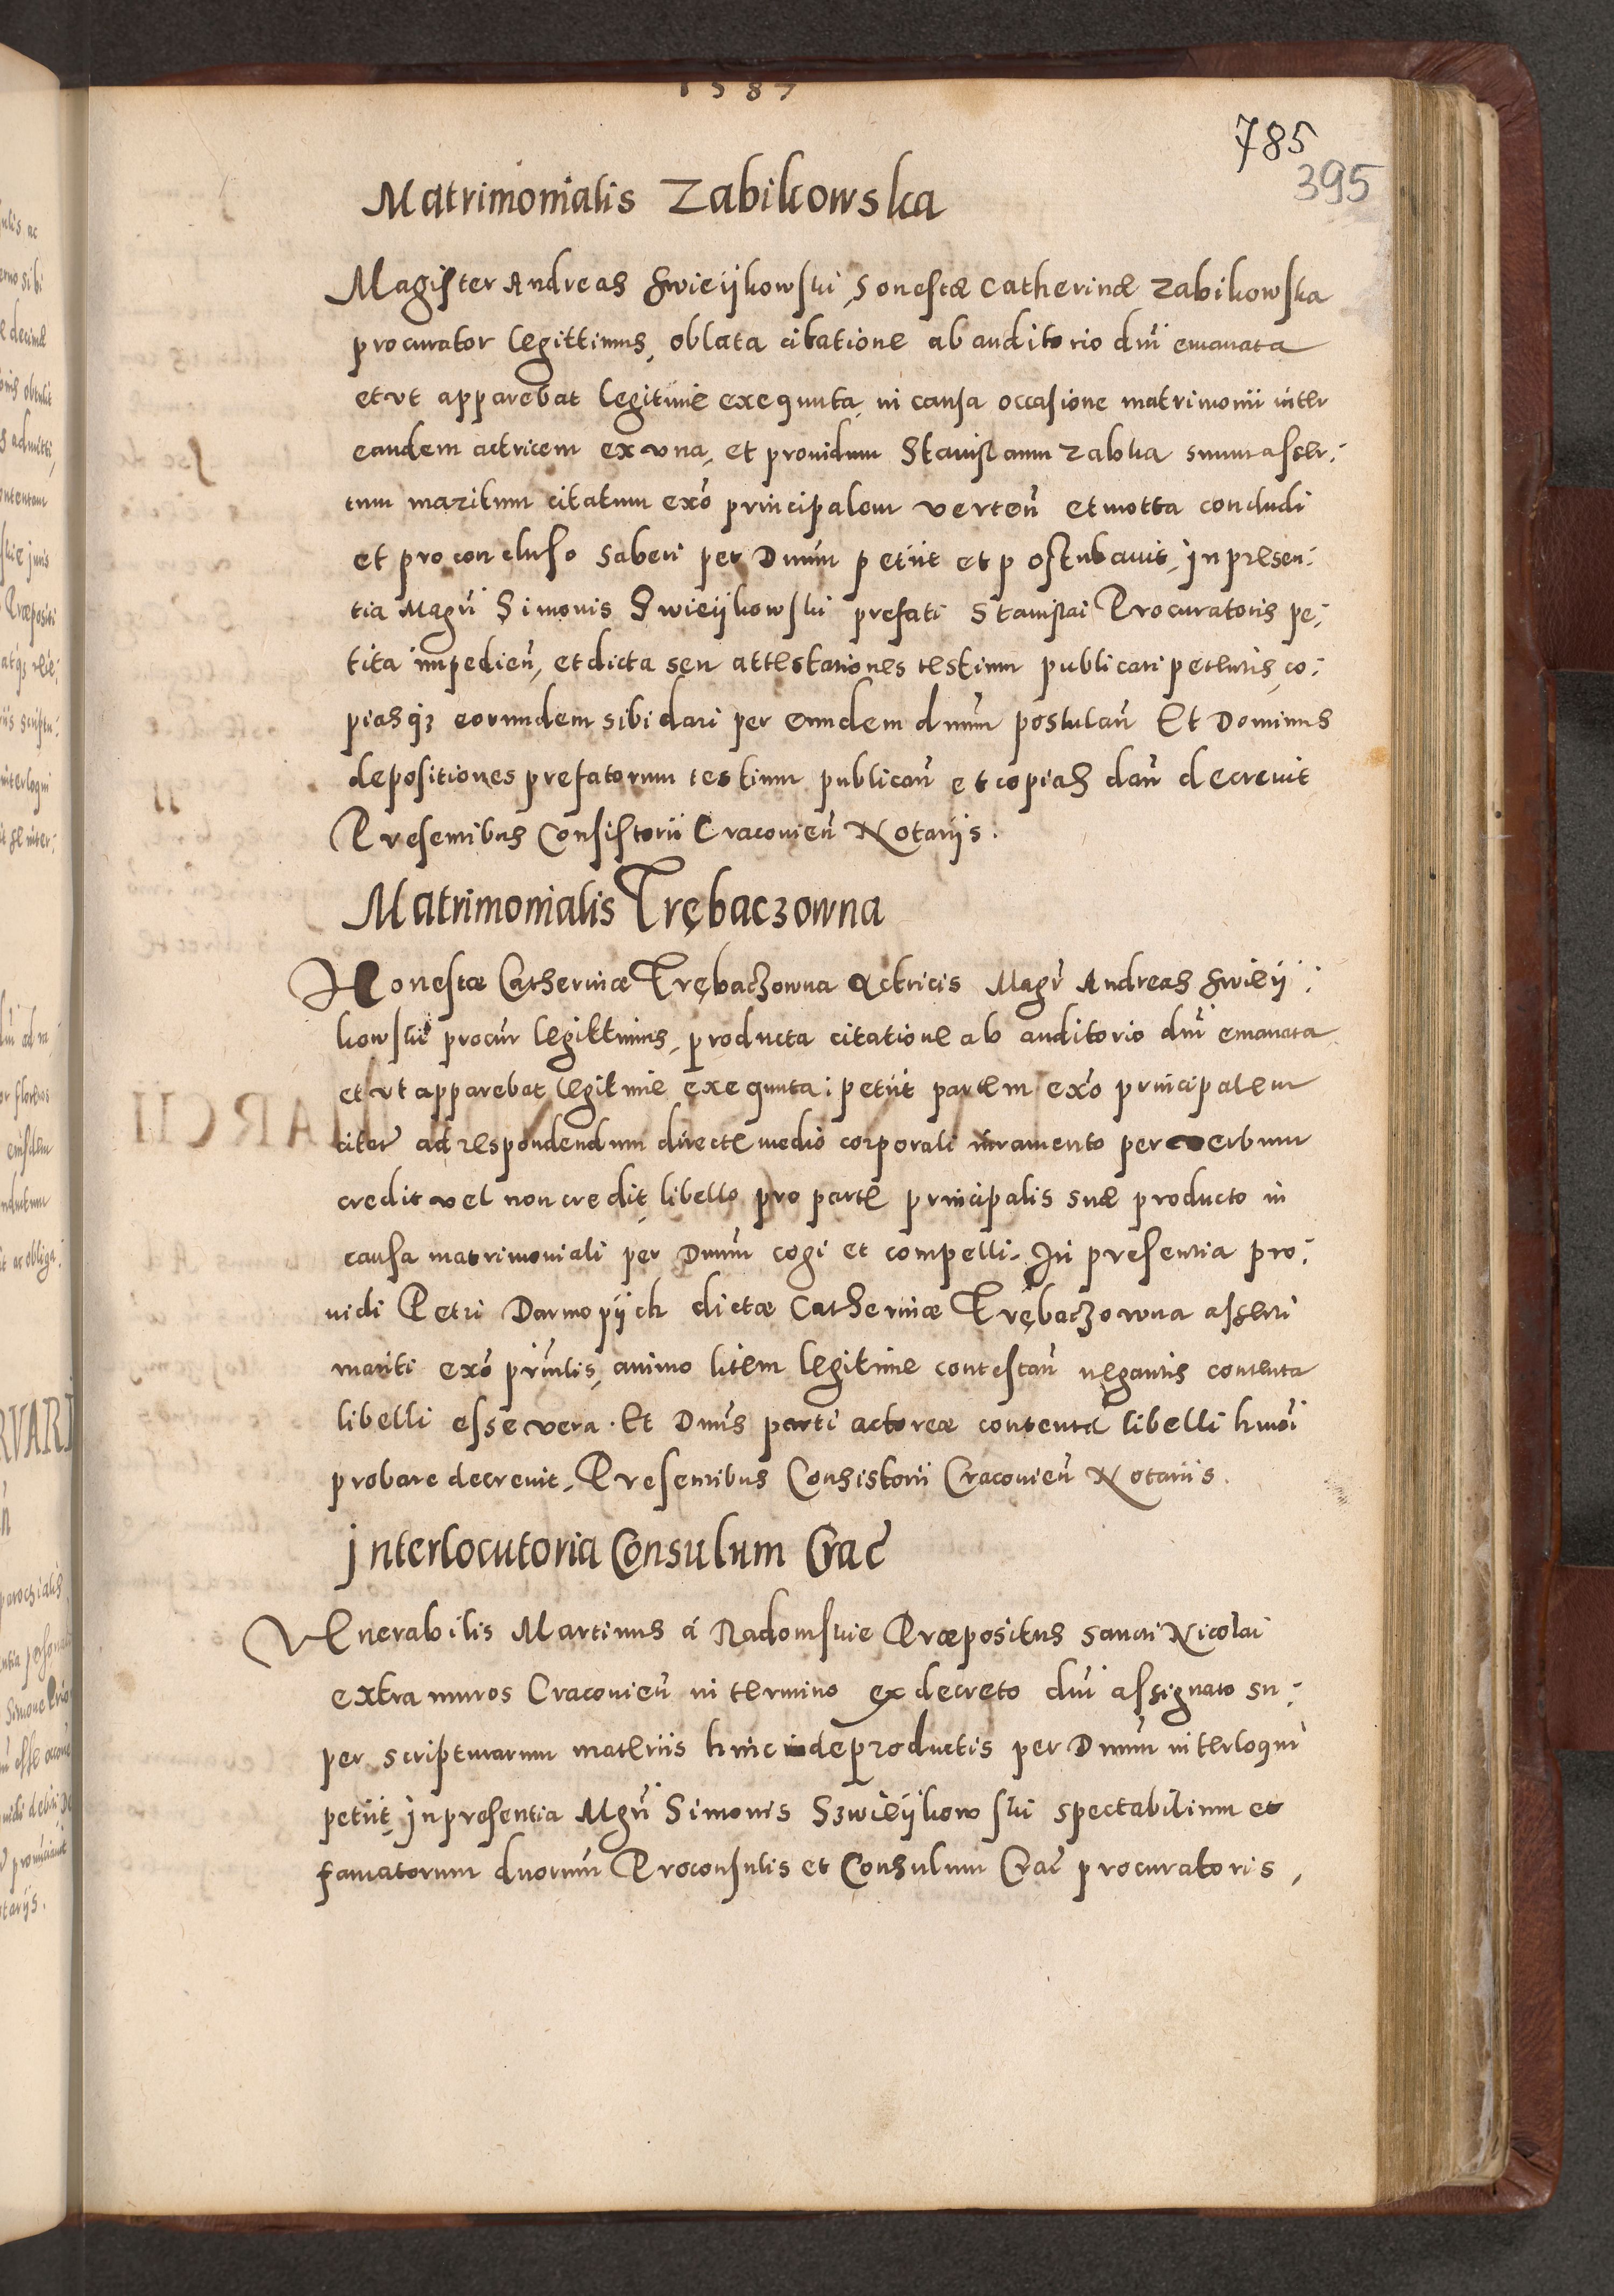 1587
785
395
Matrimonialis Zabikowska
Magister Andreas Swieijkowski, Honestæ Catherinæ Zabikowska
procurator legittimus, oblata citatione ab auditorio dni emanata
et vt apparebat legitime exequuta, in causa occasione matrimonii inter
eandem actricem ex vna, et prouidum Stanislaum Zabka suum asser:
tum maritum citatum exo principalem verten et motta concludi
et pro concluso haberi per Dnum petiit et postulauit, In presen:
tia Magri Simonis Swieijkowski prefati Stanislai Procuratoris pe:
tita impedien, et dicta seu attestationes testium publicari petentis, co:
piasq3 eorundem sibi dari per eundem dnum postulan Et Dominus
depositiones prefatorum testium publican et copias dan decreuit
Presentibus Consistorii Cracouien Notarijs.
Matrimonialis Trębaczowna
Honestæ Catherinæ Trębaczowna Actricis Magr Andreas Swieij:
kowski procur legittimus, producta citatione ab auditorio dni emanata
et vt apparebat legitime exequuta: petiit partem exo principalem
citat ad respondendum directe medio corporali iuramento per verbum
credit vel non credit, libello pro parte principalis suæ producto in
causa matrimoniali per Dnum cogi et compelli. In presentia pro:
uidi Petri Darmopijch dictæ Catherinæ Trębaczowna asserti
mariti exo prinlis, animo litem legitime contestan negantis contenta
libelli esse vera. Et Dnus parti actoreæ contenta libelli hmoi
probare decreuit, Presentibus Consistorii Cracouien Notariis.
Interlocutoria Consulum Crac
Venerabilis Martinus á Radomskie Præpositus Sancti Nicolai
extra muros Cracouien in termino ex decreto dni assignato su:
per scripturarum materiis hinc inde productis per Dnum interloqui
petiit, In presentia Mgri Simonis Szwieijkowski spectabilium et
famatorum dnorum Proconsulis et Consulum Crac procuratoris,